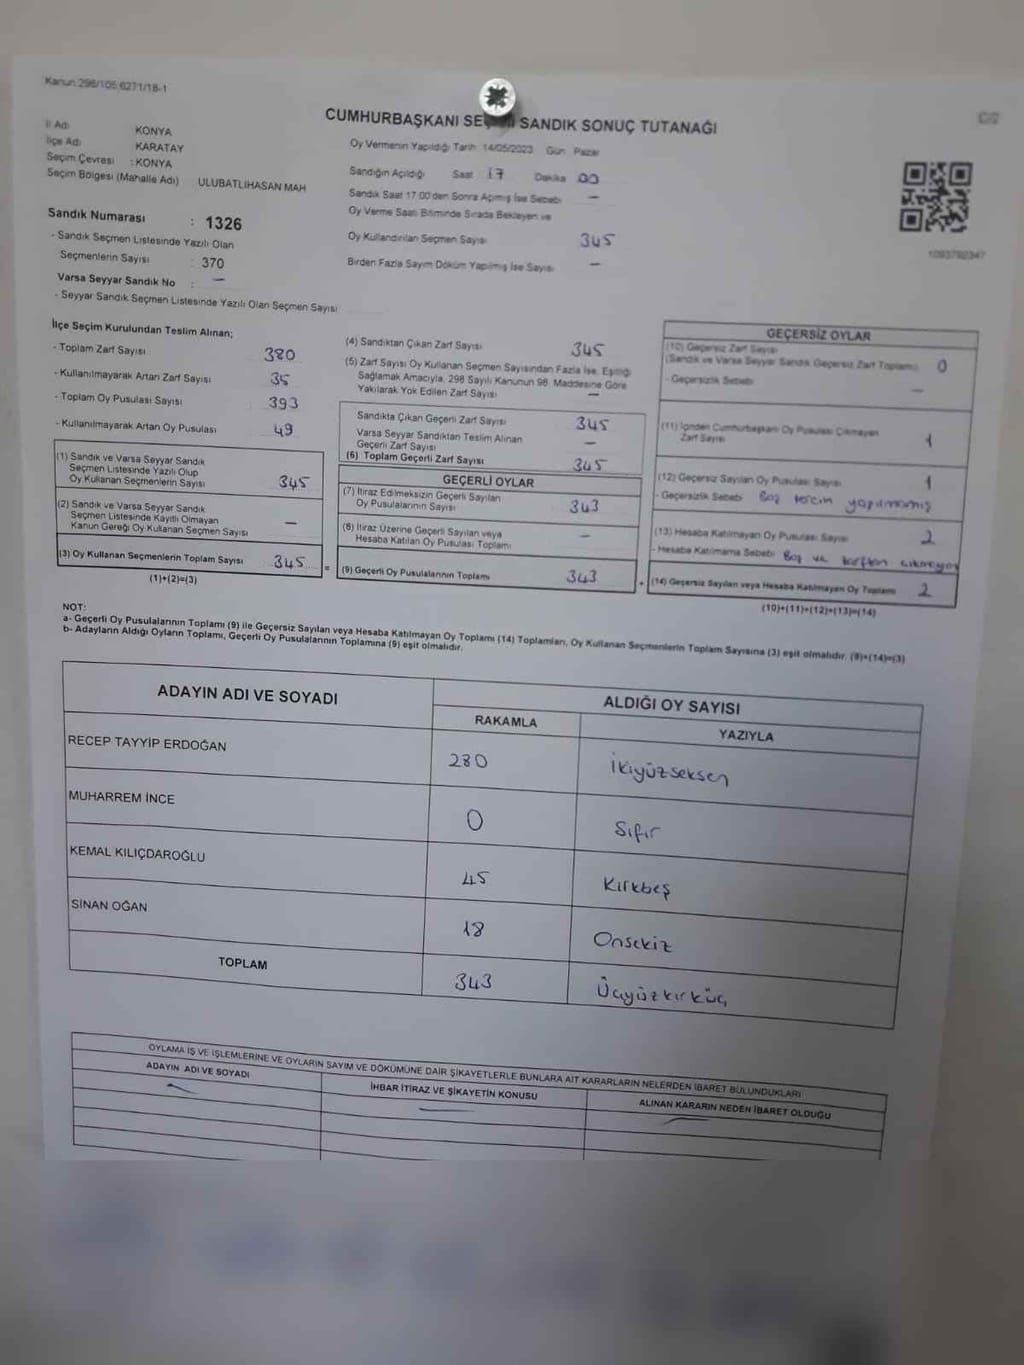 Kanun 298/105,6271/18-1
C/2
CUMHURBAŞKANI SEÇİMİ SANDIK SONUÇ TUTANAĞI
İl Adı KONYA
İlçe Adı KARATAY
Seçim Çevresi : KONYA
Seçim Bölgesi (Mahalle Adı) ULUBATLIHASAN MAH
Oy Vermenin Yapıldığı Tarih 14/05/2023 Gün Pazar
Sandığın Açıldığı Saat 17 Dakika 00
Sandık Saat 17:00'den Sonra Açılmış İse Sebebi –
Oy Verme Saati Bitiminde Sırada Bekleyen ve
Oy Kullandırılan Seçmen Sayısı 345
Birden Fazla Sayım Döküm Yapılmış İse Sayısı –
1093792347
Sandık Numarası : 1326
- Sandık Seçmen Listesinde Yazılı Olan
Seçmenlerin Sayısı : 370
Varsa Seyyar Sandık No : –
- Seyyar Sandık Seçmen Listesinde Yazılı Olan Seçmen Sayısı
İlçe Seçim Kurulundan Teslim Alınan;
- Toplam Zarf Sayısı 380
- Kullanılmayarak Artan Zarf Sayısı 35
- Toplam Oy Pusulası Sayısı 393
- Kullanılmayarak Artan Oy Pusulası 49
(1) Sandık ve Varsa Seyyar Sandık
Seçmen Listesinde Yazılı Olup
Oy Kullanan Seçmenlerin Sayısı 345
(2) Sandık ve Varsa Seyyar Sandık
Seçmen Listesinde Kayıtlı Olmayan
Kanun Gereği Oy Kullanan Seçmen Sayısı –
(3) Oy Kullanan Seçmenlerin Toplam Sayısı 345 =
(1)+(2)=(3)
(4) Sandıktan Çıkan Zarf Sayısı 345
(5) Zarf Sayısı Oy Kullanan Seçmen Sayısından Fazla İse, Eşitliği
Sağlamak Amacıyla, 298 Sayılı Kanunun 98. Maddesine Göre
Yakılarak Yok Edilen Zarf Sayısı –
Sandıkta Çıkan Geçerli Zarf Sayısı 345
Varsa Seyyar Sandıktan Teslim Alınan
Geçerli Zarf Sayısı –
(6) Toplam Geçerli Zarf Sayısı 345
GEÇERLİ OYLAR
(7) İtiraz Edilmeksizin Geçerli Sayılan
Oy Pusulalarının Sayısı 343
(8) İtiraz Üzerine Geçerli Sayılan veya
Hesaba Katılan Oy Pusulası Toplamı –
(9) Geçerli Oy Pusulalarının Toplamı 343 +
GEÇERSİZ OYLAR
(10) Geçersiz Zarf Sayısı
(Sandık ve Varsa Seyyar Sandık Geçersiz Zarf Toplamı) 0
- Geçersizlik Sebebi –
(11) İçinden Cumhurbaşkanı Oy Pusulası Çıkmayan
Zarf Sayısı 1
(12) Geçersiz Sayılan Oy Pusulası Sayısı 1
- Geçersizlik Sebebi Boş tercih yapılmamış
(13) Hesaba Katılmayan Oy Pusulası Sayısı 2
- Hesaba Katılmama Sebebi Boş ve zarftan çıkmayan
(14) Geçersiz Sayılan veya Hesaba Katılmayan Oy Toplamı 2
(10)+(11)+(12)+(13)=(14)
NOT:
a- Geçerli Oy Pusulalarının Toplamı (9) ile Geçersiz Sayılan veya Hesaba Katılmayan Oy Toplamı (14) Toplamları, Oy Kullanan Seçmenlerin Toplam Sayısına (3) eşit olmalıdır. (9)+(14)=(3)
b- Adayların Aldığı Oyların Toplamı, Geçerli Oy Pusulalarının Toplamına (9) eşit olmalıdır.
ADAYIN ADI VE SOYADI ALDIĞI OY SAYISI
RAKAMLA YAZIYLA
RECEP TAYYİP ERDOĞAN 280 İkiyüzseksen
MUHARREM İNCE 0 Sıfır
KEMAL KILIÇDAROĞLU 45 Kırkbeş
SİNAN OĞAN 18 Onsekiz
TOPLAM 343 Üçyüzkırküç
OYLAMA İŞ VE İŞLEMLERİNE VE OYLARIN SAYIM VE DÖKÜMÜNE DAİR ŞİKAYETLERLE BUNLARA AİT KARARLARIN NELERDEN İBARET BULUNDUKLARI
ADAYIN ADI VE SOYADI İHBAR İTİRAZ VE ŞİKAYETİN KONUSU ALINAN KARARIN NEDEN İBARET OLDUĞU
– – –